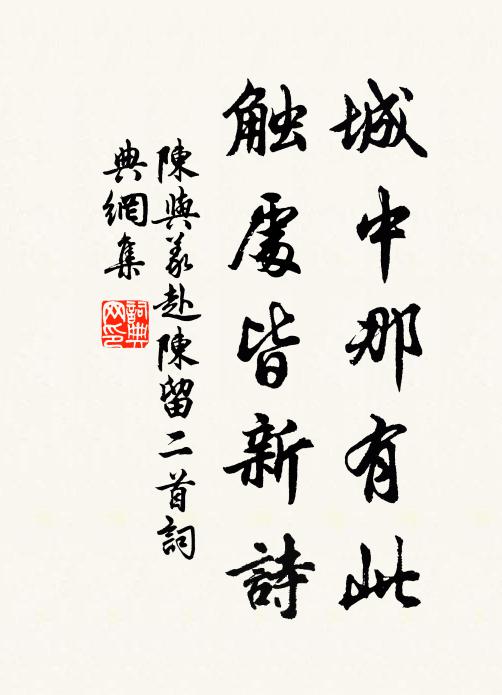 城中那有此
触處皆新詩
陳與義赴陳留二首詞
典網集
詞典
网印